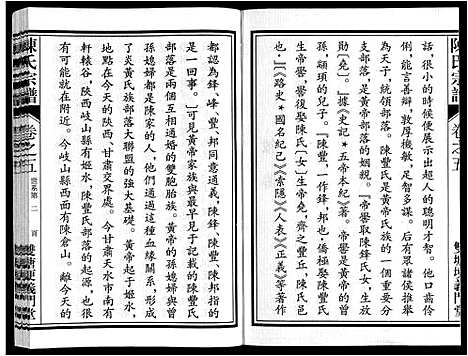 陳氏宗譜
卷之五
雙塘埂義門堂
話，很小的時候便展示出超人的聰明才智。他口齒伶
俐，能言善辯，敦厚機敏，足智多謀。后有眾部落諸侯推
為天子，統領部落。陳豐氏是黃帝族的一個重要分
支部落，是黃帝部落的姻親。『帝嚳取陳鋒氏女，生放
勛【堯】。』據《史記★五帝本紀》著。帝嚳是黃帝的曾
孫，顓頊的兒子。『陳豐，一作鋒，邦，有僑氏以帝女，
生帝嚳，嚳復娶陳氏【女】生帝堯，齊之豐丘，陳氏邑
也。』《路史★國名紀己》《索隱》《人表》《正義》等著作
都認為鋒、峰、豐、邦同意通義，陳鋒、陳豐、陳邦指的
是一回事。』可見黃帝家族與最早見于記載的陳氏
部落是兩個互相通婚的雙胞胎族。黃帝的孫媳婦與曾
孫媳婦都是陳家的人，兩代人這種血緣關系，形成
了炎黃氏族部落大聯盟的強大基礎。黃帝起于姬水，
地點在今天陝西、甘肅交界處。今甘肅天水市南有
軒轅谷，陝西岐山縣有姬水，陳豐氏部落的起源，也很
有可能就在附近。今岐山縣西面有陳倉山。離今天的
陳氏宗譜
卷之五
世系第二頁
雙塘埂義門堂